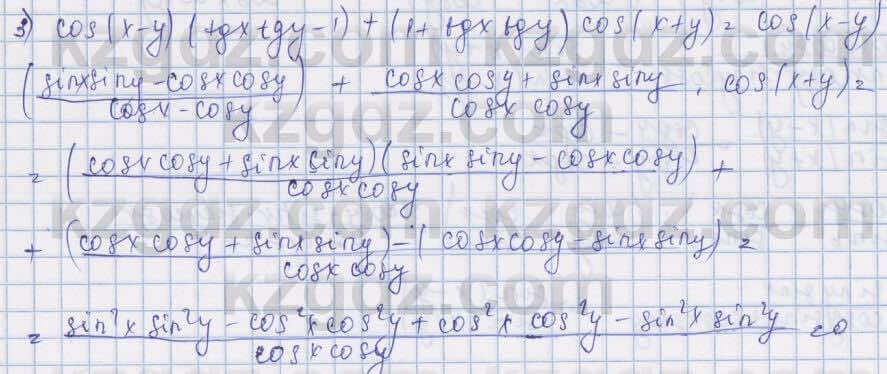 3) cos(x-y) (tgx tgy - 1) + (1 + tgx tgy) cos(x+y) = cos(x-y)
(sinx siny - cosx cosy / cosx - cosy) + cosx cosy + sinx siny / cosx cosy · cos(x+y) =
= (cosx cosy + sinx siny)(sinx siny - cosx cosy) / cosx cosy +
+ (cosx cosy + sinx siny) - (cosx cosy - sinx siny) / cosx cosy =
= sin²x sin²y - cos²x cos²y + cos²x cos²y - sin²x sin²y / cosx cosy = 0
kzgdz.com